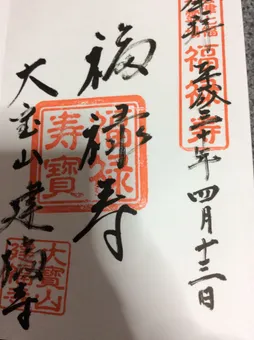 奉拝 平成三十年四月十三日
福禄寿
福禄寿寶
大宝山建福寺
大寶山
建福寺